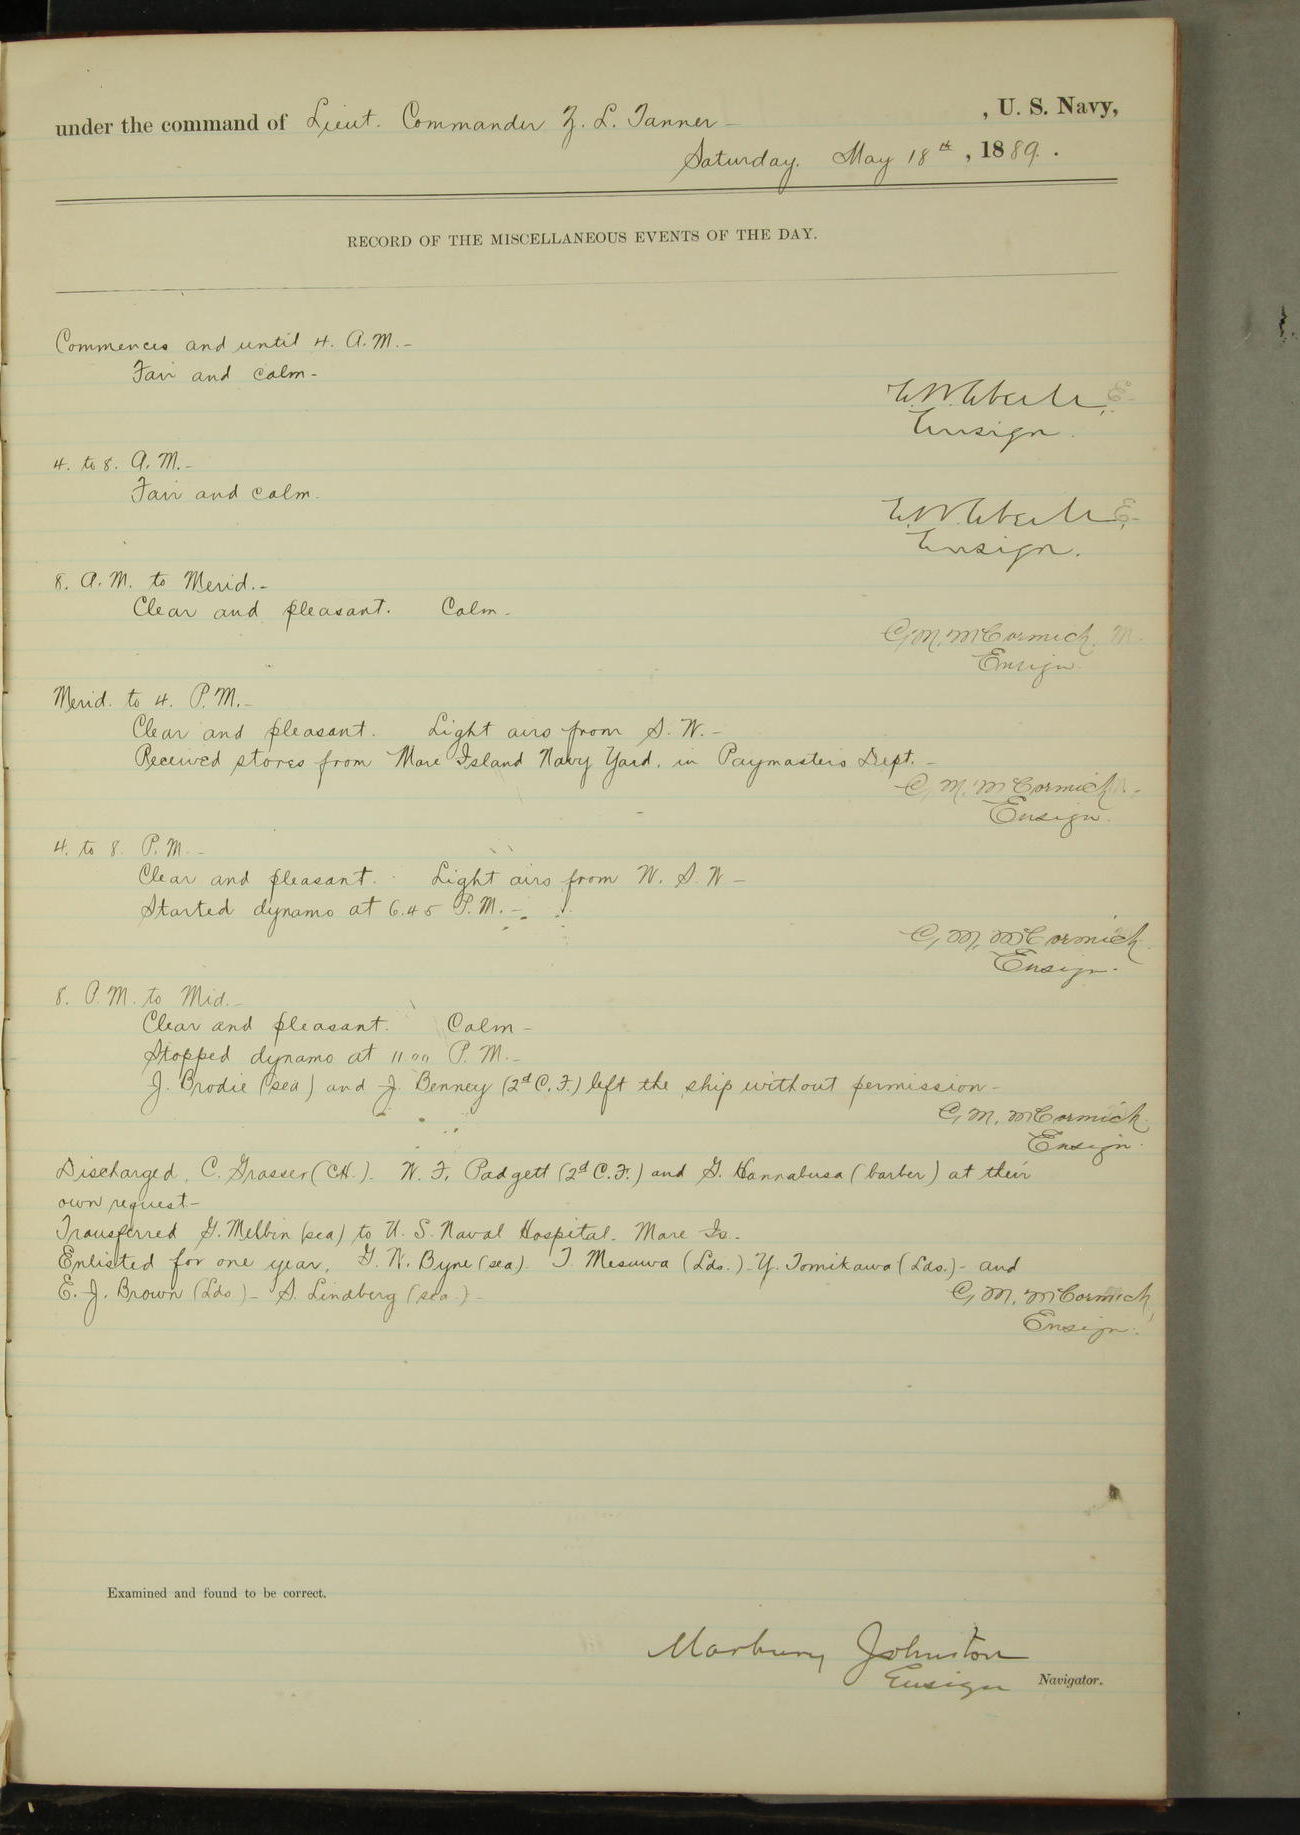 under the command of Lieut. Commander Z. L. Tanner - , U. S. Navy,
Saturday. May 18th , 1889. .
RECORD OF THE MISCELLANEOUS EVENTS OF THE DAY.
Commences and until 4. A.M.-
Fair and calm-
E. W. Eberle,
Ensign.
4. to 8. A.M.-
Fair and calm.
E. W. Eberle,
Ensign.
8. A.M. to Merid.-
Clear and pleasant. Calm-
C, M, McCormick,
Ensign.
Merid. to 4. P.M.-
Clear and pleasant. Light airs from S. W.-
Received stores from Mare Island Navy Yard, in Paymasters Dept.-
C, M. McCormick
Ensign.
4. to 8. P.M.-
Clear and pleasant. Light airs from W. S. W-
Started dynamo at 6.45 P.M.-
C, M, McCormick
Ensign.
8. P.M. to Mid.-
Clear and pleasant. Calm-
Stopped dynamo at 11 00 P. M.-
J. Brodie (sea) and J. Benney (2d C. F.) left the ship without permission-
C, M, McCormick,
Ensign.
Discharged, C. Grasser (CH.). W. F. Padgett (2d C. F.) and G. Hannabusa (barber) at their
own request-
Transferred G. Melbin (sea) to U. S. Naval Hospital. Mare Is.
Enlisted for one year, G. W. Byne (sea). T. Mesuwa (Lds.)- Y. Tomikawa (Lds.)- and
E. J. Brown (Lds.)- S. Lindberg (sea.)-
C, M, McCormick,
Ensign.
Examined and found to be correct.
Marbury Johnston
Ensign Navigator.